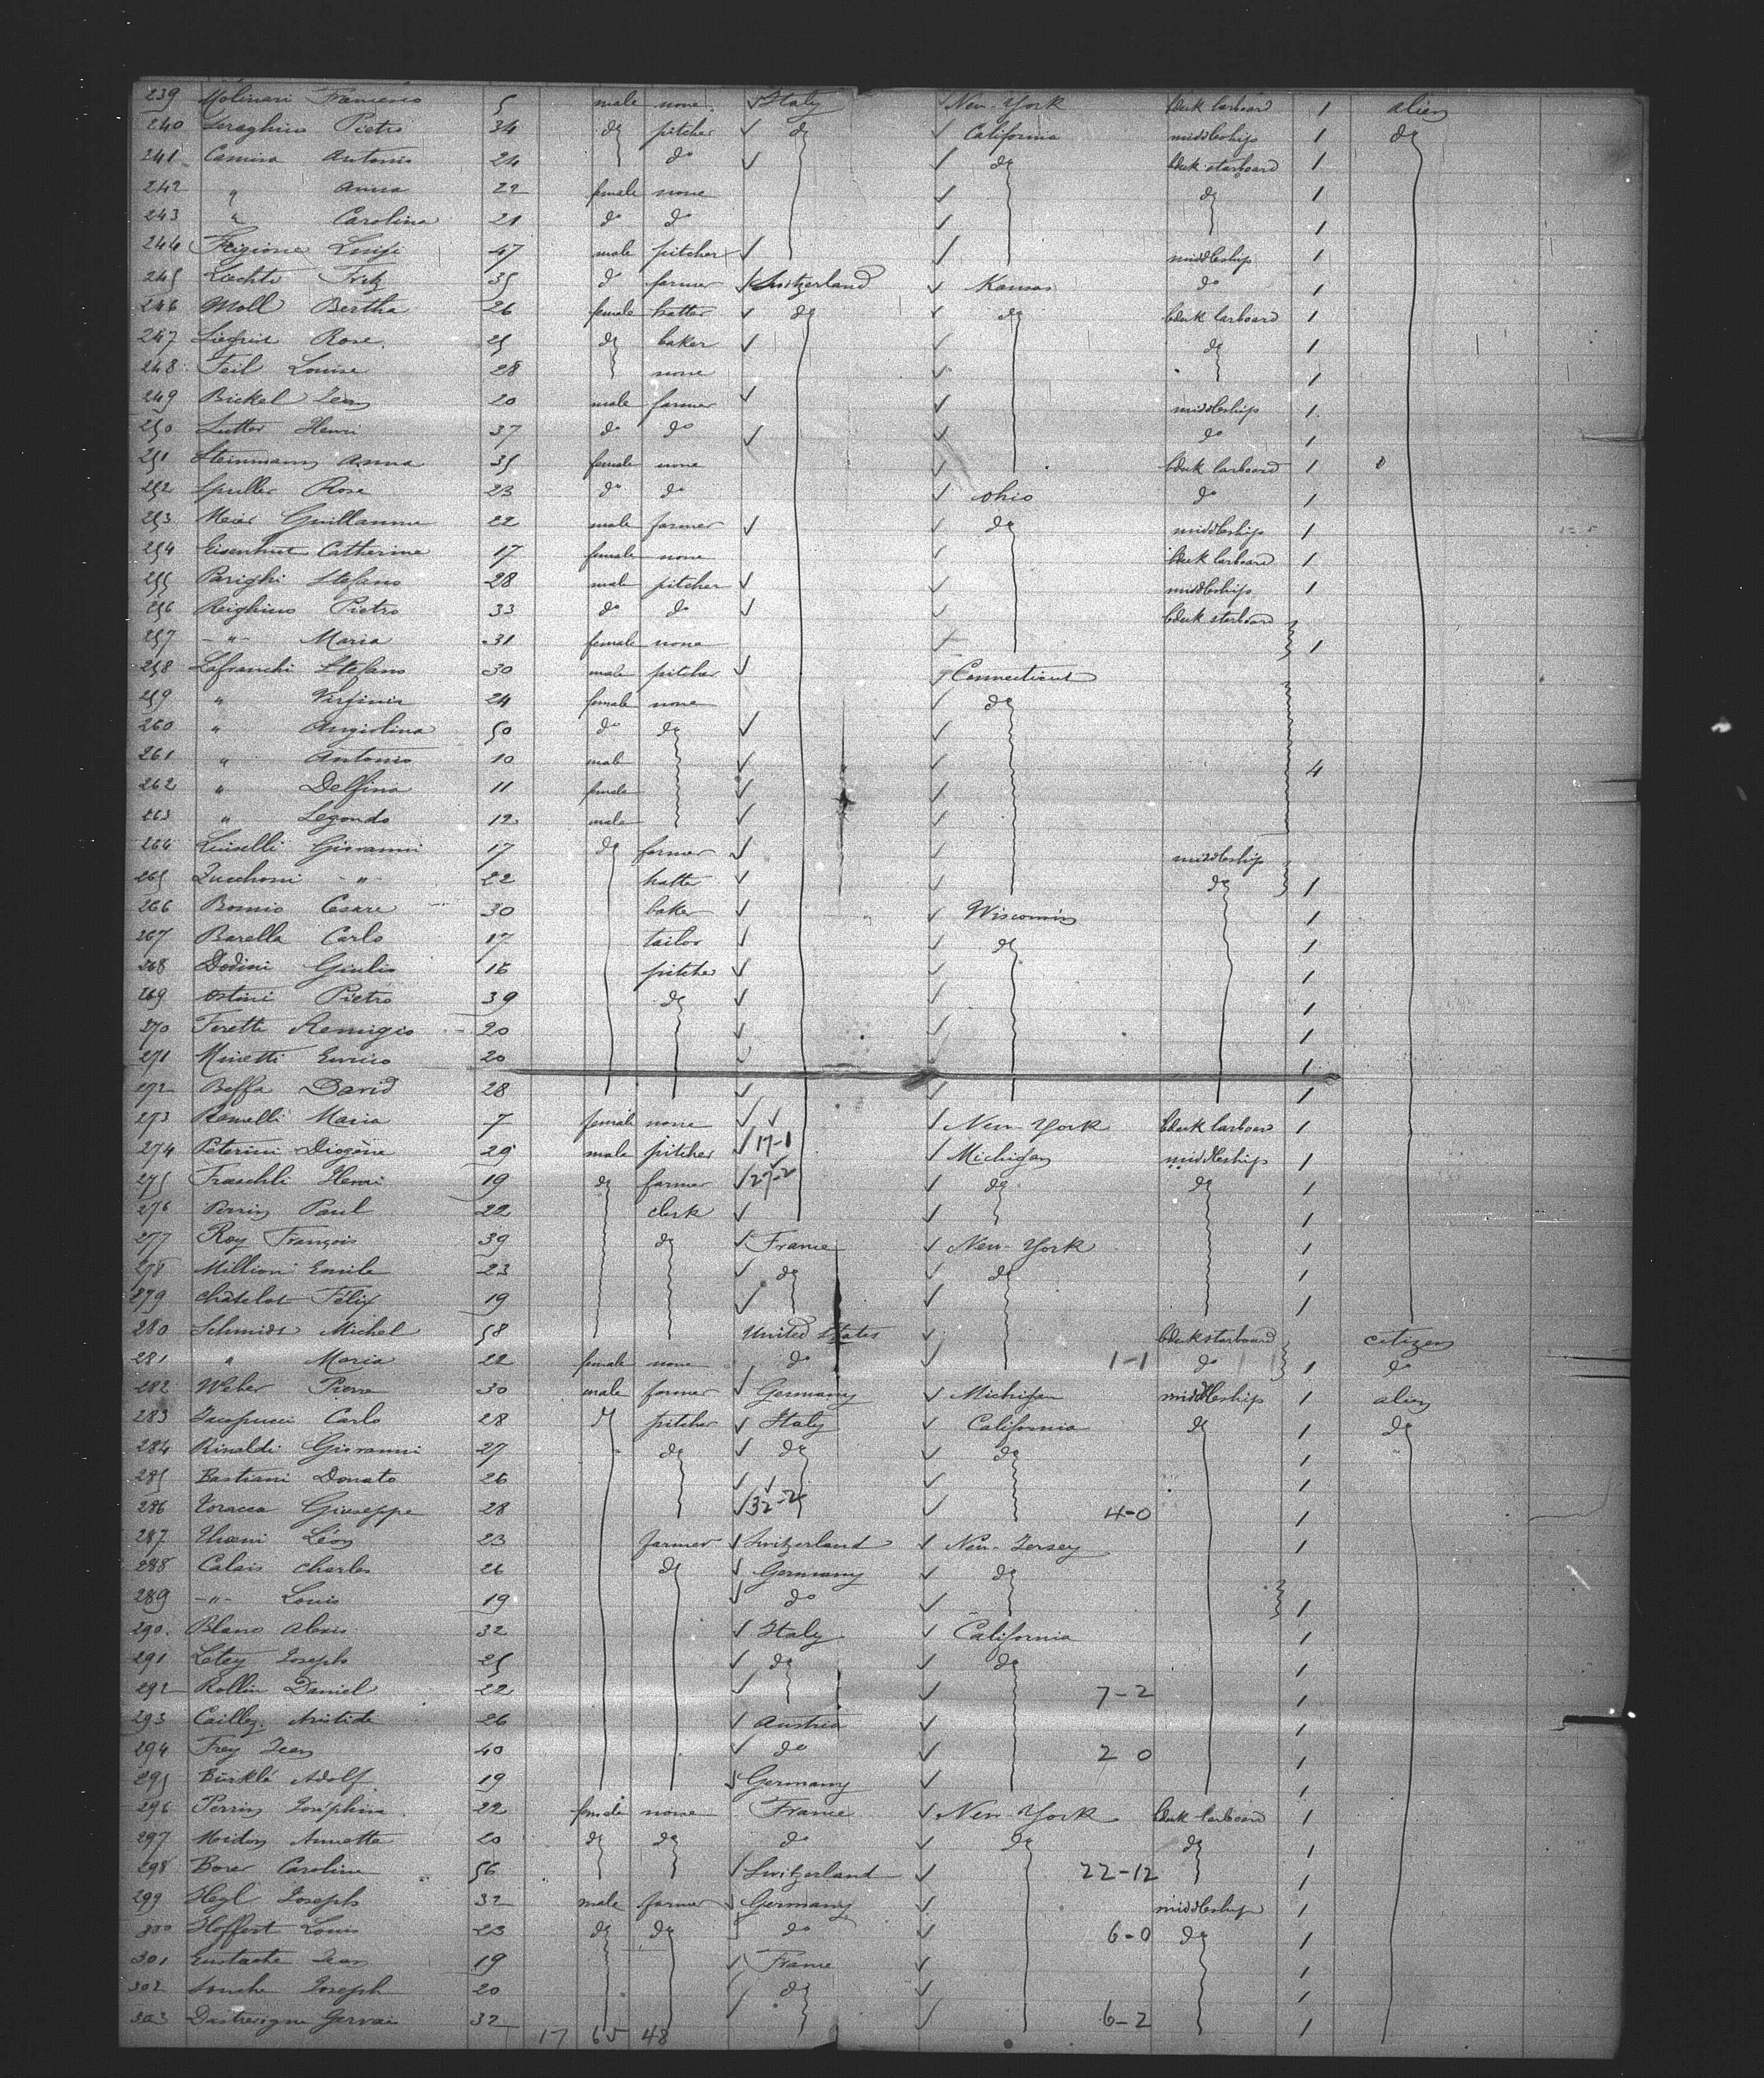 239 Molinari Francesco 5 male none Italy New-York bdeck larboard 1 alien
240 Seraghino Pietro 34 do pitcher do California middleship 1 do
241 Camisa Antonio 24 do do bdeck starboard 1
242 " Anna 22 female none do 1
243 " Carolina 21 do do 1
244 Frigione Luigi 47 male pitcher middleship 1
245 Luchti Fritz 35 do farmer Switzerland Kansas do 1
246 Moll Bertha 26 female hatter do do bdeck larboard 1
247 Rose 25 do baker do 1
248 Feil Louise 28 none 1
249 Bickel Jean 20 male farmer middleship 1
250 Sutter Henri 37 do do do 1
251 Steinmann Anna 35 female none bdeck larboard 1
252 Spuller Rose 23 do do Ohio do 1
253 Meier Guillaume 22 male farmer do middleship 1
254 Eisenhut Catherine 17 female none bdeck larboard 1
255 Parighi Stefano 28 male pitcher middleship 1
256 Reighino Pietro 33 do do bdeck starboard
257 -"- Maria 31 female none 1
258 Lafranchi Stefano 30 male pitcher Connecticut
259 " Virginia 24 female none do
260 " Angiolina 50 do do
261 " Antonio 10 male 4
262 " Delfina 11 female
263 " Segondo 12 male
264 Luiselli Giovanni 17 do farmer middleship
265 Zucchoni -"- 22 hatter do 1
266 Bomio Cesare 30 baker Wisconsin 1
267 Barella Carlo 17 tailor do 1
268 Dodini Giulio 16 pitcher 1
269 Ostini Pietro 39 do 1
270 Feretti Remigio 20 1
271 Minetti Enrico 20 1
272 Beffa David 28 1
273 Ramelli Maria 7 female none New-York bdeck larboard 1
274 Peterini Diogène 29 male pitcher 17-1 Michigan middleship 1
275 Fraschli Henri 19 do farmer 27-2 do do 1
276 Perrin Paul 22 clerk 1
277 Roy François 39 do France New-York 1
278 Millioni Emile 23 do do 1
279 Châtelot Félix 19 1
280 Schmidt Michel 58 United States bdeck starboard citizen
281 " Maria 22 female none do 1-1 do 1 do
282 Weber Pierre 30 male farmer Germany Michigan middleship 1 alien
283 Jacopucci Carlo 28 do pitcher Italy California do 1 do
284 Rinaldi Giovanni 27 do do do 1
285 Bastiani Donato 26 1
286 Toracca Giuseppe 28 32-2 4-0 1
287 Léon 23 farmer Switzerland New-Jersey 1
288 Calais Charles 26 do Germany do
289 -"- Louis 19 do 1
290 Blanc Alexis 32 Italy California 1
291 Letey Joseph 25 do do 1
292 Rollin Daniel 22 7-2 1
293 Caillez Aristide 26 Austria 1
294 Frey Jean 40 do 2 0 1
295 Bürklé Adolf 19 Germany 1
296 Perrin Joséphine 22 female none France New-York bdeck larboard 1
297 Midon Annette 20 do do do do do 1
298 Borer Caroline 56 Switzerland 22-12 1
299 Hegl Joseph 32 male farmer Germany middleship 1
300 Hoffert Louis 23 do do do 6-0 do 1
301 Eustache Jean 19 France 1
302 Joseph 20 do 1
303 Dastrevigne Gervais 32 6-2 1
17 65 48